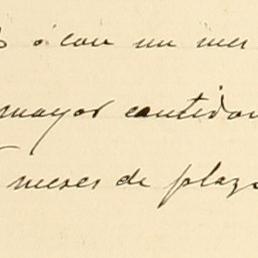 ó con un mes
mayor cantidad
meses de plazo